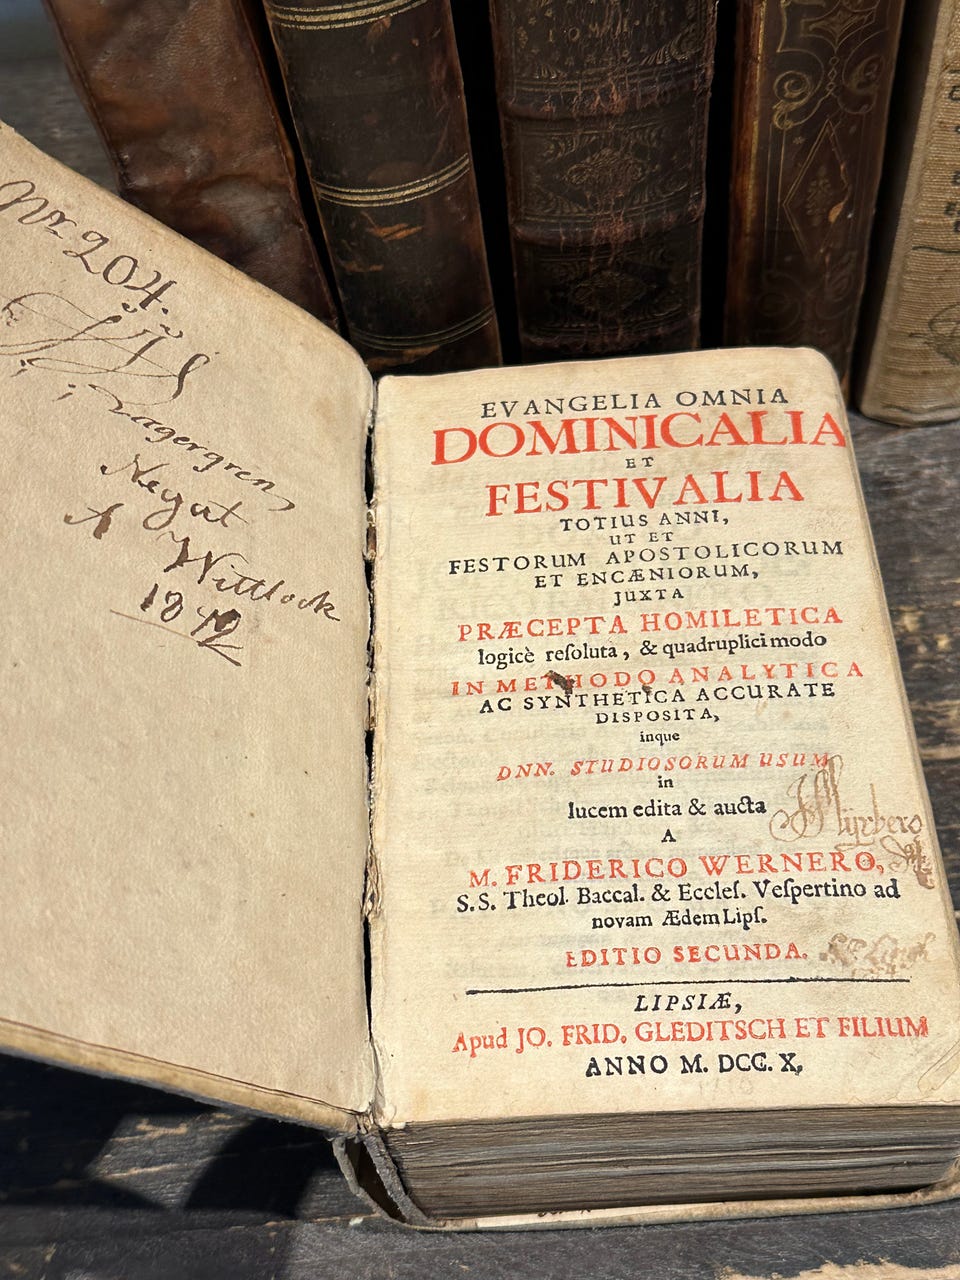 Nr 204.
Lagergren
A
Wittlock
1842
EVANGELIA OMNIA
DOMINICALIA
ET
FESTIVALIA
TOTIUS ANNI,
UT ET
FESTORUM APOSTOLICORUM
ET ENCÆNIORUM,
JUXTA
PRÆCEPTA HOMILETICA
logicè reſoluta, & quadruplici modo
IN METHODO ANALYTICA
AC SYNTHETICA ACCURATE
DISPOSITA,
inque
DNN. STUDIOSORUM USUM
in
lucem edita & aucta
A
M. FRIDERICO WERNERO,
S.S. Theol. Baccal. & Eccleſ. Veſpertino ad
novam Ædem Lipſ.
EDITIO SECUNDA.
LIPSIÆ,
Apud JO. FRID. GLEDITSCH ET FILIUM
ANNO M. DCC. X,